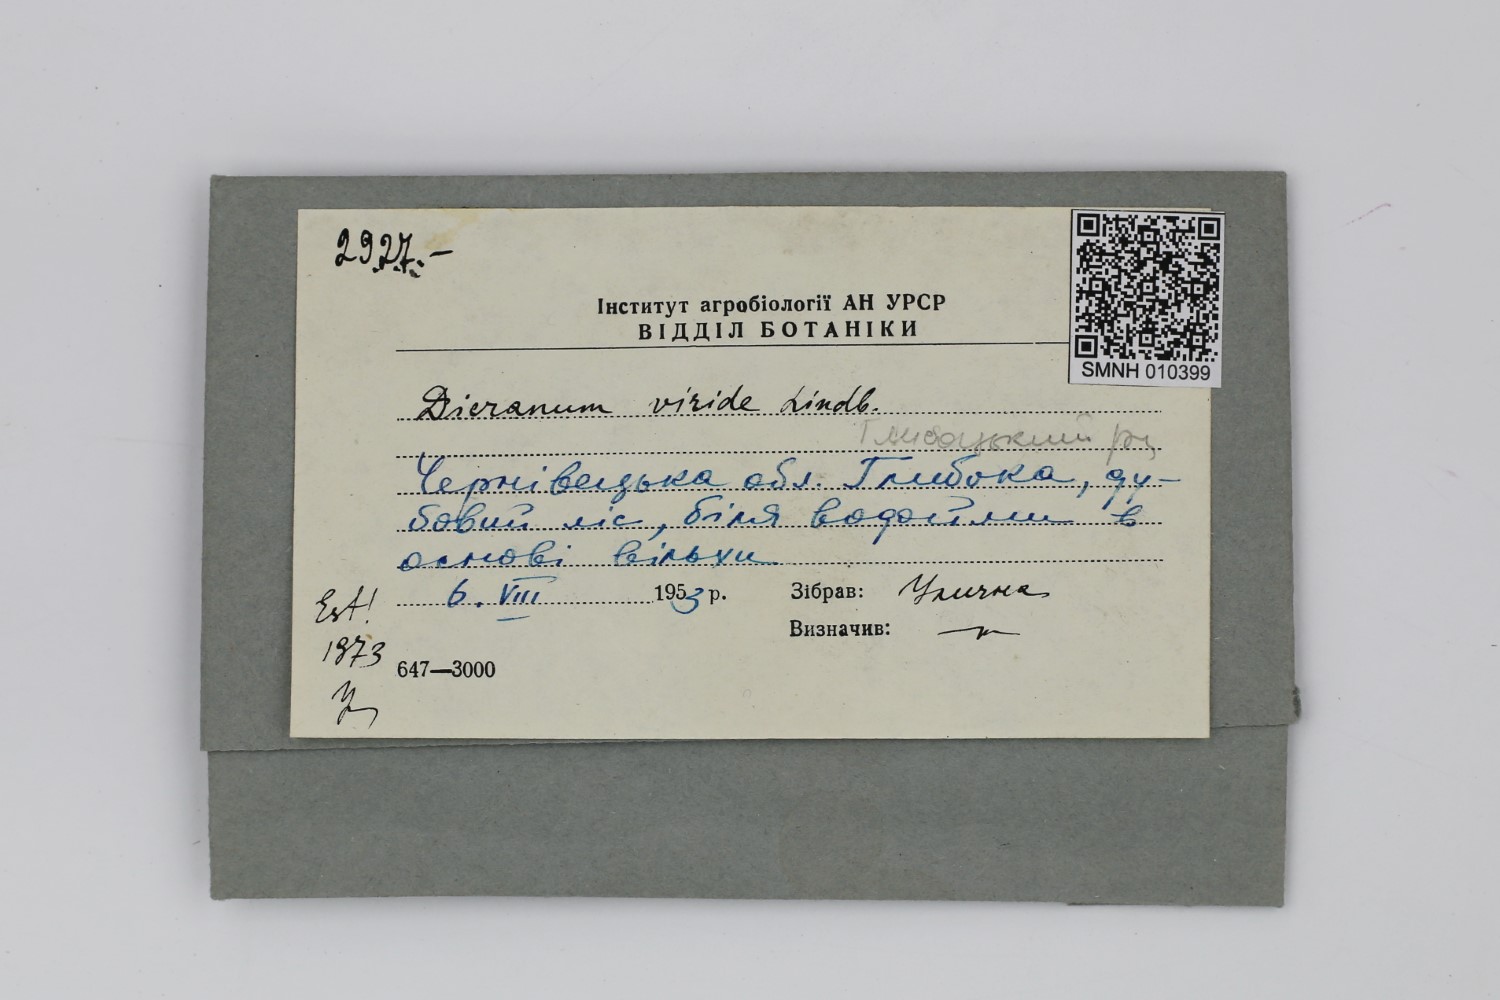 2927.-
Інститут агробіології АН УРСР
ВІДДІЛ БОТАНІКИ
SMNH 010399
Dicranum viride Lindb.
Глибоцький р-н
Чернівецька обл. Глибока, ду-
бовий ліс, біля водойми в
основі вільхи
6. VIII 1953 р.
Зібрав: Улична
Визначив: —"—
Est!
1973
647—3000